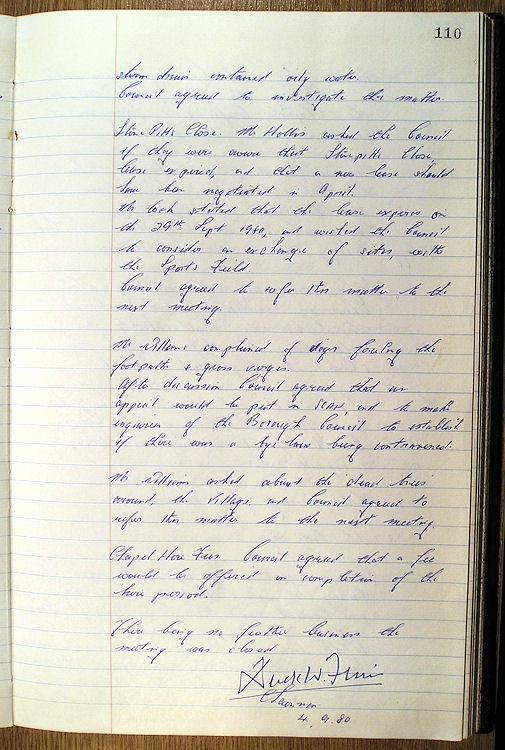 110
storm drain contained oily water.
Council agreed to investigate this matter.
Stone Pitts Close. Mr Hollis asked the Council
if they were aware that Stonepitts Close,
lease expired, and that a new lease should
have been negotiated in April.
Mr Cook stated that the lease expires on
the 29th Sept 1980, and wished the Council
to consider an exchange of sites, with
the Sports Field.
Council agreed to refer this matter to the
next meeting.
Mr Williams complained of dogs fouling the
footpaths & grass verges.
After discussion Council agreed that an
appeal would be put in SCAN, and to make
inquiries of the Borough Council to establish
if there was a bye law being contravened.
Mr Williams asked about the dead trees
around the Village, and Council agreed to
refer this matter to the next meeting.
Chapel Hire Fees Council agreed that a fee
would be offered on completion of the
hire period.
There being no further business the
meeting was closed
Chairman
4.9.80